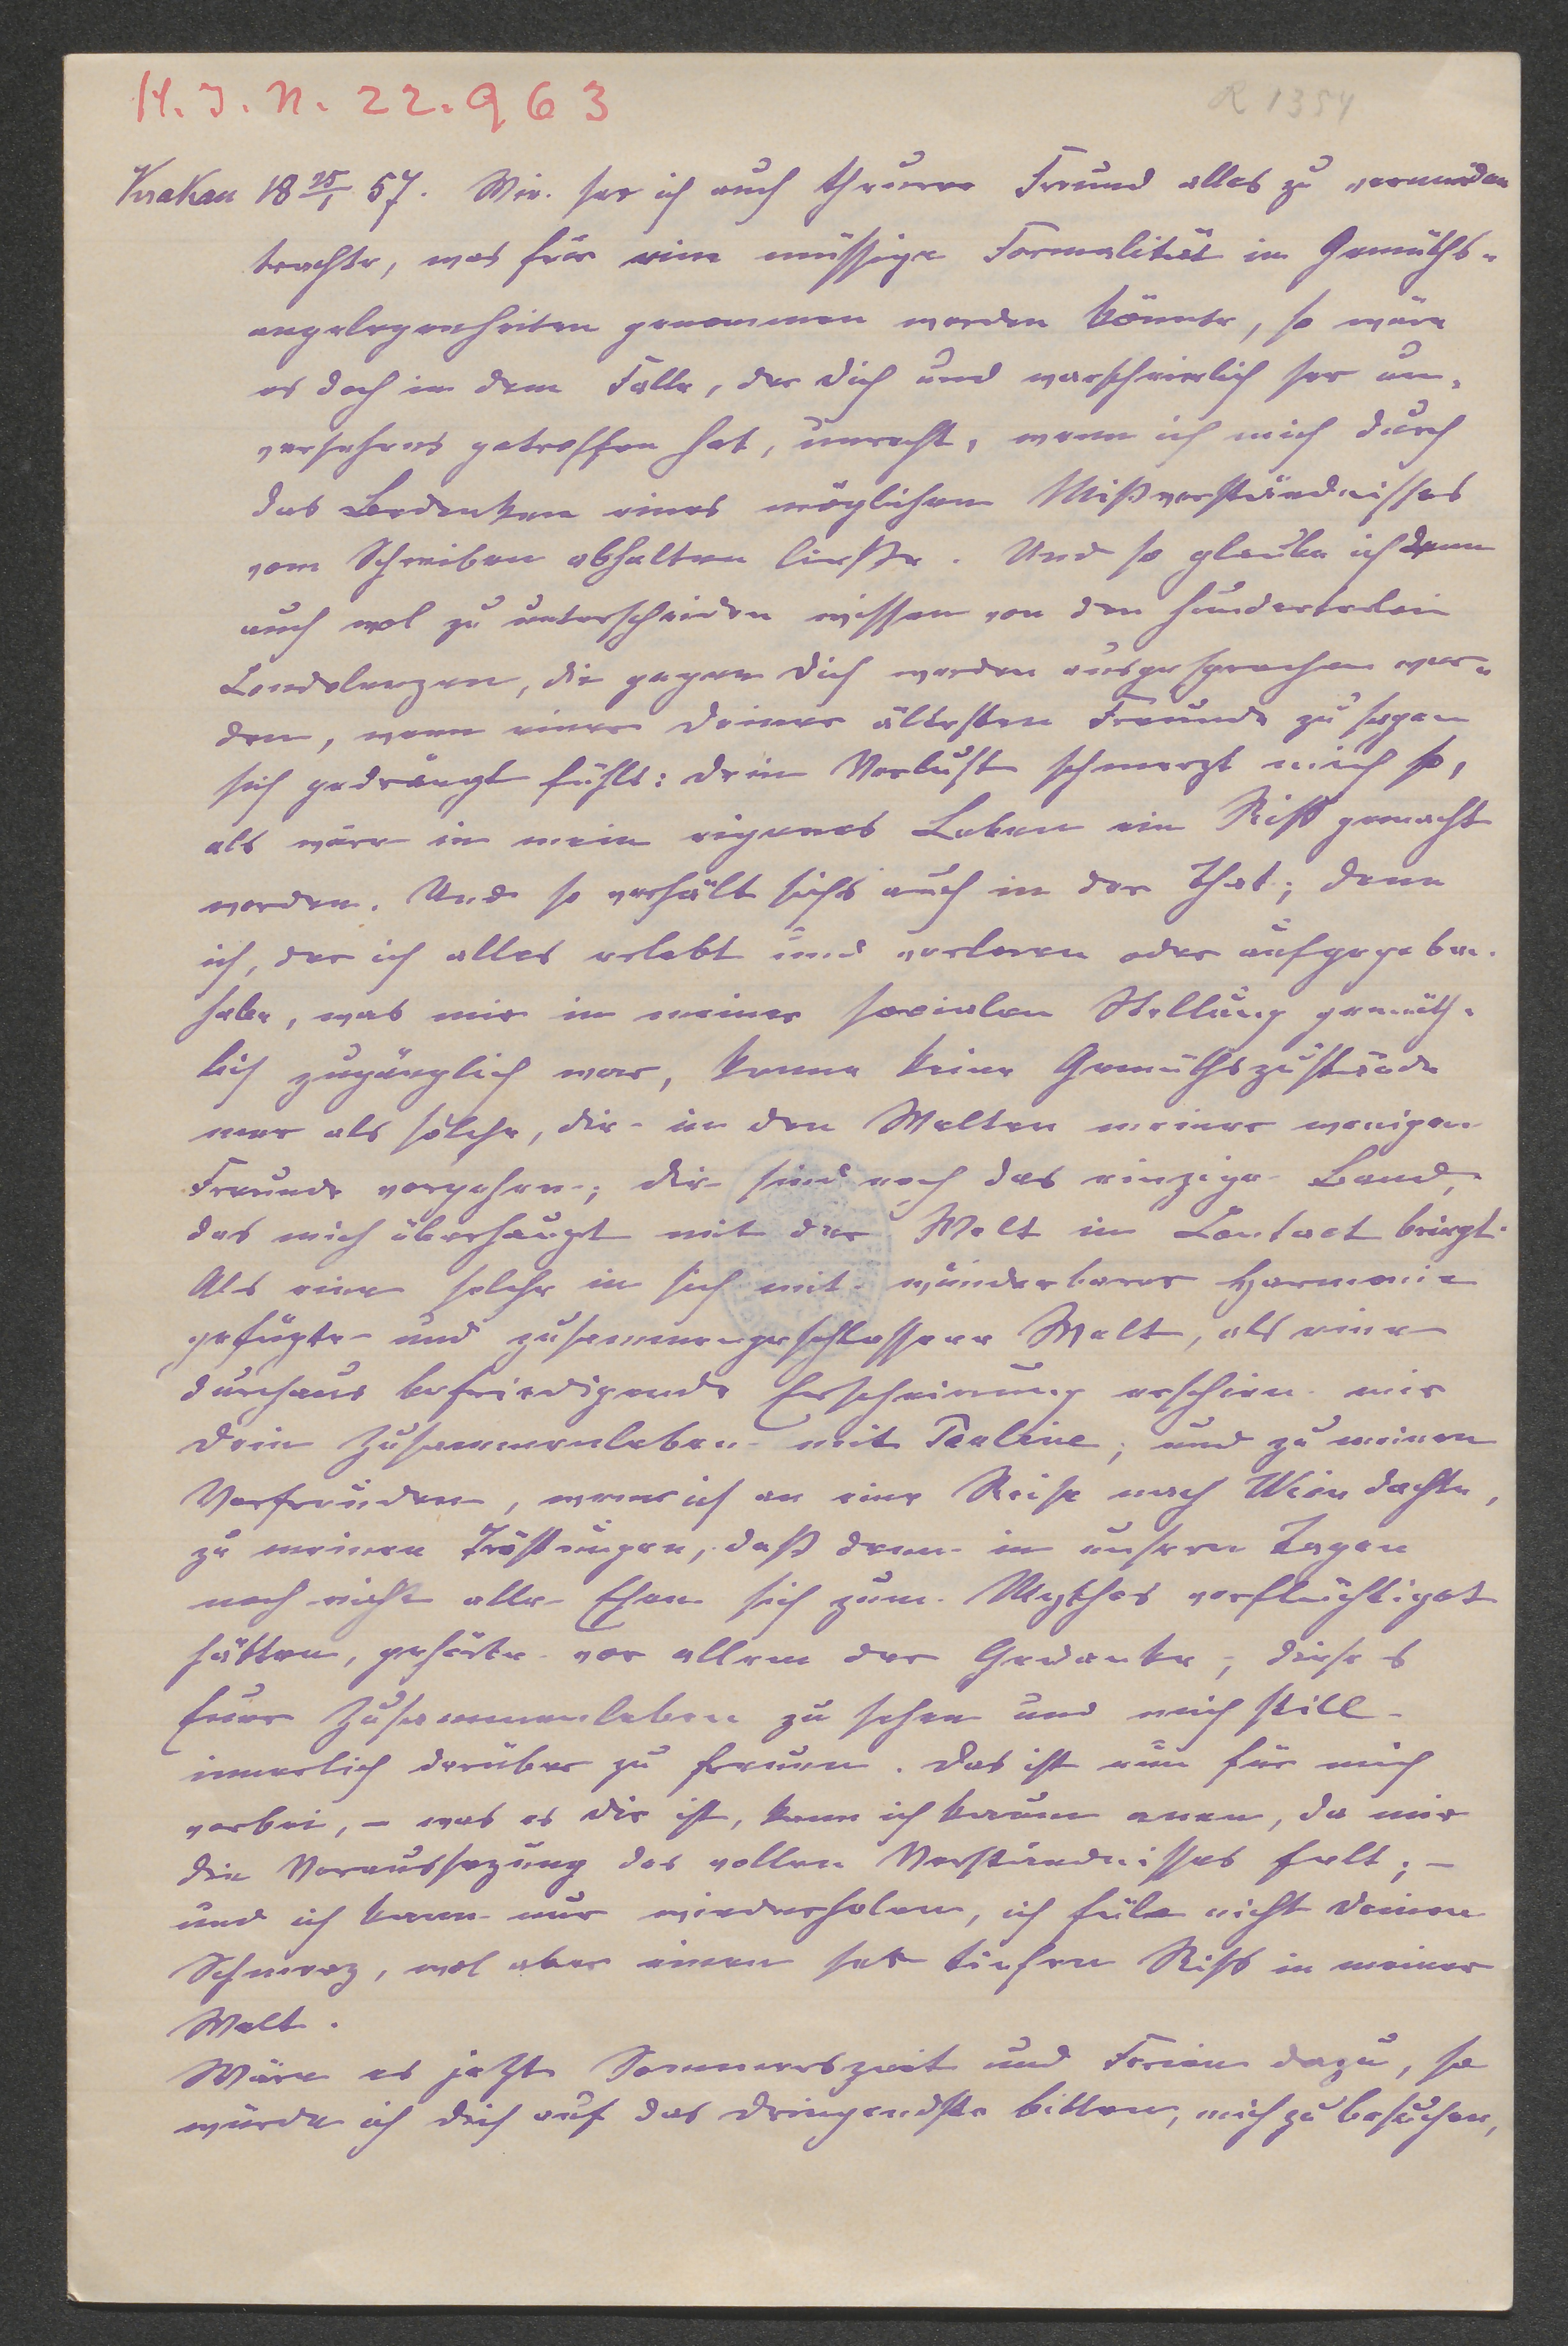 H. I. N. 22.963
R 1354
Krakau 18 25/1 57. Wie ser ich auch theurer Freund alles zu vermeiden
trachte, was für eine müssige Formalität in Gemüths-
angelegenheiten genommen werden könnte, so wäre
es doch in dem Falle, der dich und warscheinlich ser un-
versehens getroffen hat, unrecht, wenn ich mich durch
das Bedenken eines möglichen Mißverständnisses
vom Schreiben abhalten liesse. Und so glaube ich denn
auch wol zu unterscheiden wissen von den hunderterlei
Condolenzen, die gegen dich werden ausgesprochen wer-
den, wenn einer deiner ältesten Freunde zu sagen
sich gedrängt fühlt: dein Verlust schmerzt mich so,
als wäre in mein eigenes Leben ein Riss gemacht
worden. Und so verhält sichs auch in der That; denn
ich, der ich alles erlebt und verloren oder aufgegeben
habe, was mir in meiner socialen Stellung gemüth-
lich zugänglich war, kenne keine Gemüthszustände
mer als solche, die in den Welten meiner wenigen
Freunde vorgehen; die sind noch das einzige Band,
das mich überhaupt mit der Welt in Contact bringt.
Als eine solche in sich mit wunderbarer Harmonie
gefügte und zusammengeschlossene Welt, als eine
durchaus befriedigende Erscheinung erschien mir
dein Zusammenleben mit Pauline; und zu meinen
Vorfreuden, wenn ich an eine Reise nach Wien dachte,
zu meinen Tröstungen, daß denn in unseren Tagen
noch nicht alle Ehen sich zum Mythos verflüchtiget
hätten, gehörte vor allem der Gedanke, dieses
Euer Zusammenleben zu sehen und mich still
innerlich darüber zu freuen. Das ist nun für mich
vorbei, – was es dir ist, kann ich kaum anen, da mir
die Voraussezung des vollen Verständnisses felt; –
und ich kann nur wiederholen, ich füle nicht deinen
Schmerz, wol aber einen ser tiefen Riss in meiner
Welt.
Wäre es jetzt Sommerszeit und Ferien dazu, so
würde ich dich auf das dringendste bitten, mich zu besuchen,